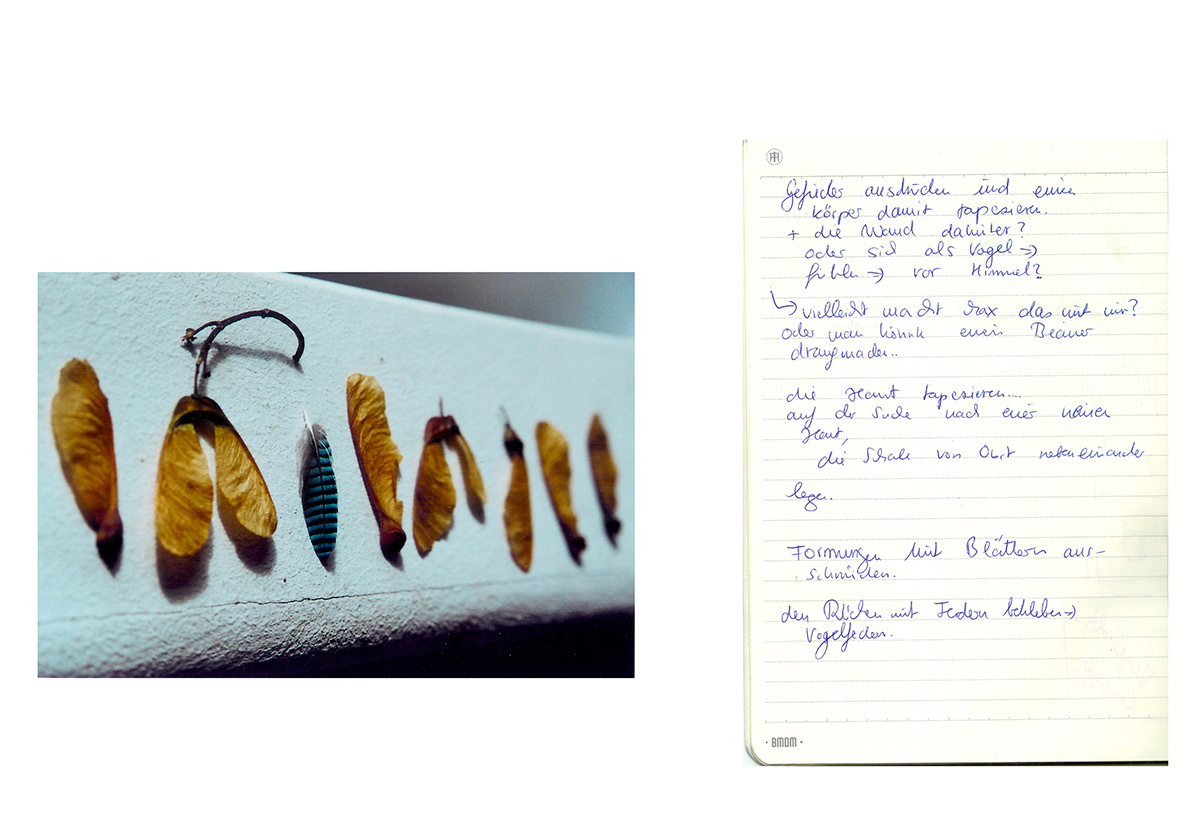 Gefieder ausdrucken und einen
körper damit tapezieren.
+ die Wand dahinter?
oder sich als Vogel →
fühlen → vor Himmel?
↳ vielleicht macht das mit mir?
oder man könnte einen
die Haut tapezieren....
auf der Suche nach einer neuen
Haut,
die Schale von Obst nebeneinander
legen.
Formungen mit Blättern aus-
schmücken.
den Rücken mit Federn bekleben →
Vogelfedern.
• BMDM •